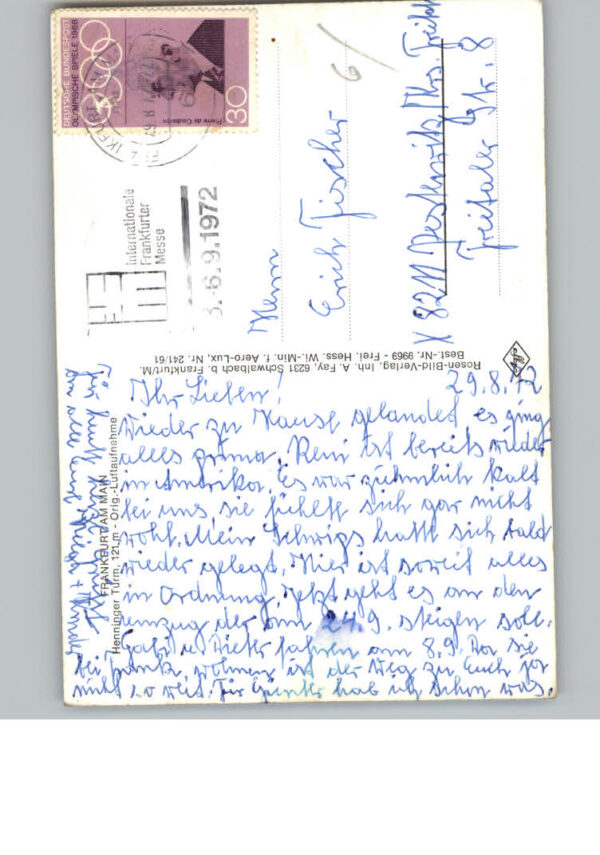 DEUTSCHE BUNDESPOST
OLYMPISCHE SPIELE 1968
Pierre de Coubertin
30
Internationale
Frankfurter
Messe
3.-6.9.1972
6/
Herrn
Erich Fischer
X 8211
Freitaler Str. 8
Rosen-Bild-Verlag, Inh. A. Fay, 6231 Schwalbach b. Frankfurt/M.
Best.-Nr. 9969 - Frei. Hess. Wi.-Min. f. Aero-Lux, Nr. 241/61
Agfa
FRANKFURT AM MAIN
Henninger Turm, 121 m - Orig.-Luftaufnahme
29.8.72
Ihr Lieben!
Wieder zu Hause gelandet es ging
alles prima. Reni ist bereits wieder
in Amerika. Es war ziehmlich kalt
bei uns sie fühlte sich gar nicht
wohl. Mein Schwips hatt sich bald
wieder gelegt. Hier ist soweit alles
in Ordnung. Jetzt geht es an den
umzug der am 24.9. steigen soll.
Gabi u. Dieter fahren am 8.9. Da sie
bei wohnen ist der Weg zu Euch gar
nicht so weit. Für hab ich schon was.
Für heute herzl.